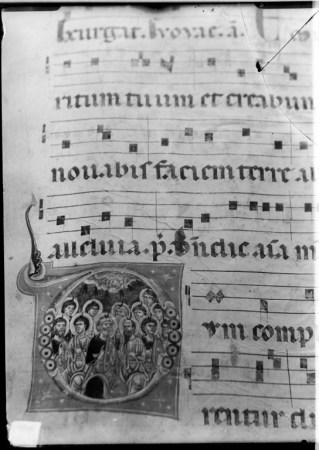 Exurgat. Evovae. a.
ritum tuum et creabun
novabis faciem terre al
alleluia. p. Benedic aīa m
um comp
rentur di